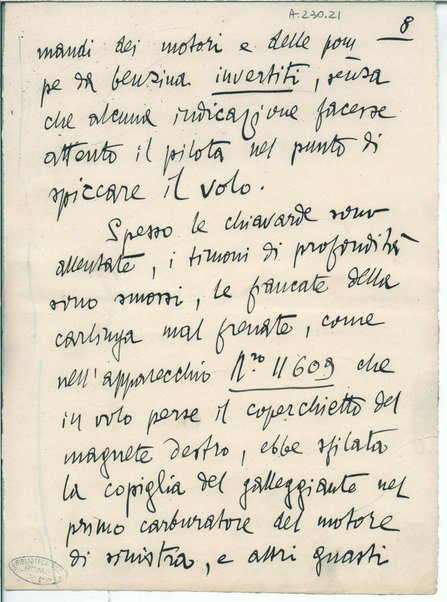 A.230.21
8
mandi dei motori e delle pom
pe da benzina invertiti, senza
che alcuna indicazione facesse
attento il pilota nel punto di
spiccare il volo.
Spesso le chiavarde sono
allentate, i timoni di profondità
sono smossi, le fiancate della
carlinga mal frenate, come
nell'apparecchio N.ro 11609 che
in volo perse il coperchietto del
magnete destro, ebbe sfilata
la copiglia del galleggiante nel
primo carburatore del motore
di sinistra, e altri guasti